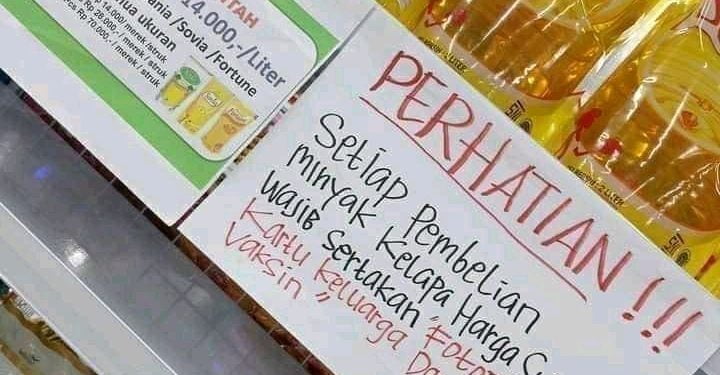 14.000,-/Liter
/Sovia /Fortune
ukuran
14.000,-/ merek /struk
Rp 28.000,- / merek / struk
Rp 70.000,-/ merek / struk
PERHATIAN !!!
Setiap Pembelian
Minyak Kelapa Harga
Wajib Sertakan "Foto
Kartu Keluarga
Vaksin "
2 LITER